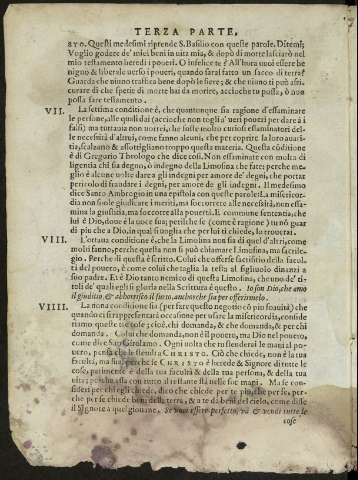 TERZA PARTE,
870. Questi medesimi riprende S. Basilio con queste parole. Ditemi;
Voglio godere de' miei beni in uita mia, & dopò di morte lasciarò nel
mio testamento heredi i poueri. O infelice te? All'hora uuoi essere be
nigno & liberale uerso i poueri, quando sarai fatto un sacco di terra?
Guarda che niuno traffica bene dopò le fiere; & che niuno ti può assi
curare di che spetie di morte hai da morire, acciochè tu posta, ò non
possa fare testamento.
VII. La settima conditione è, che quantunque sia ragione d'essaminare
le persone, alle quali dai (acciochè non togli a' ueri poueri per dare à i
falsi) ma tuttauia non uorrei, che fosse molto curioso essaminatore del-
le necessità d'altri, come fanno alcuni, che per coprire la loro auari-
tia, scalzano & assottigliano troppo questa materia. Questa cōditione
è di Gregorio Theologo che dice così. Non essaminate con molta di
ligentia chi sia degno, ò indegno della Limosina che fate: perche me-
glio è alcune uolte dare a gli indegni per amore de' degni, che portar
pericolo di fraudare i degni, per amore de gli indegni. Il medesimo
dice Santo Ambrogio in una epistola con queste parole: La misericor-
dia non suole giudicare i meriti, ma soccorrere alle necessità, non essa-
mina la giustitia, ma soccorre alla pouertà. E commune sententia, che
lui è Dio, doue è la uoce sua; perilche se (come è ragione) tu nō guar
di piu che a Dio, in qual si uoglia che per lui ti chiede, lo trouerai.
VIII. L'ottaua conditione è, che la Limosina non sia di quel d'altri, come
molti fanno, perche questa non si può chiamare Limosina, ma sacrile-
gio. Perche di questa è scritto. Colui che offerse sacrificio della facol-
tà del pouero, è come colui che taglia la testa al figliuolo dinanzi a
suo padre. Et è Dio tanto nemico di questa Limosina, che uno de' ti-
toli de' quali egli si gloria nella Scrittura è questo. Io son Dio, che amo
il giuditio, & abhorisco il furto, anchorche sia per offerirmelo.
VIIII. La nona conditione sia (per fare questo negotio cō piu soauità) che
quando ci si rappresentarà occasione per usare la misericordia, conside
riamo queste tre cose; cioè, chi domanda, & che domanda, & per chi
domanda. Colui che domanda, non è il pouero, ma Dio nel pouero,
come dice San Girolamo. Ogni uolta che tu stenderai le mani al po-
uero, pensa che la stendi a CHRISTO. Ciò che chiede, non è la tua
facoltà, ma sua, perche se CHRISTO è herede & Signore di tutte le
cose, parimente è della tua facultà & della tua persona, & della tua
uita; poiche assa con tutto al restante stà nelle sue mani. Ma se consi-
deri per chi egli chiede, dico che chiede piu per te, che per se, per-
che per se chiede beni della terra, & a te dà beni del cielo, come disse
il Signore a quel giouane. Se uuoi essere perfetto, và & uendi tutte le
cose